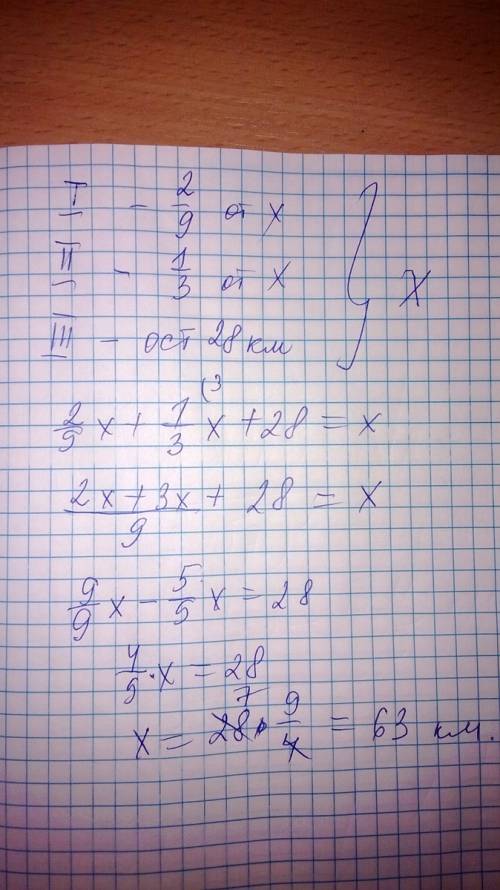 I - 2/9 от x
II - 1/3 от x } X
III - ост 28 км
2/9 x + 1/3 (3 x + 28 = x
(2x + 3x)/9 + 28 = x
9/9 x - 5/5 x = 28
4/9 · x = 28
x = 28 7 · 9/4 = 63 км.